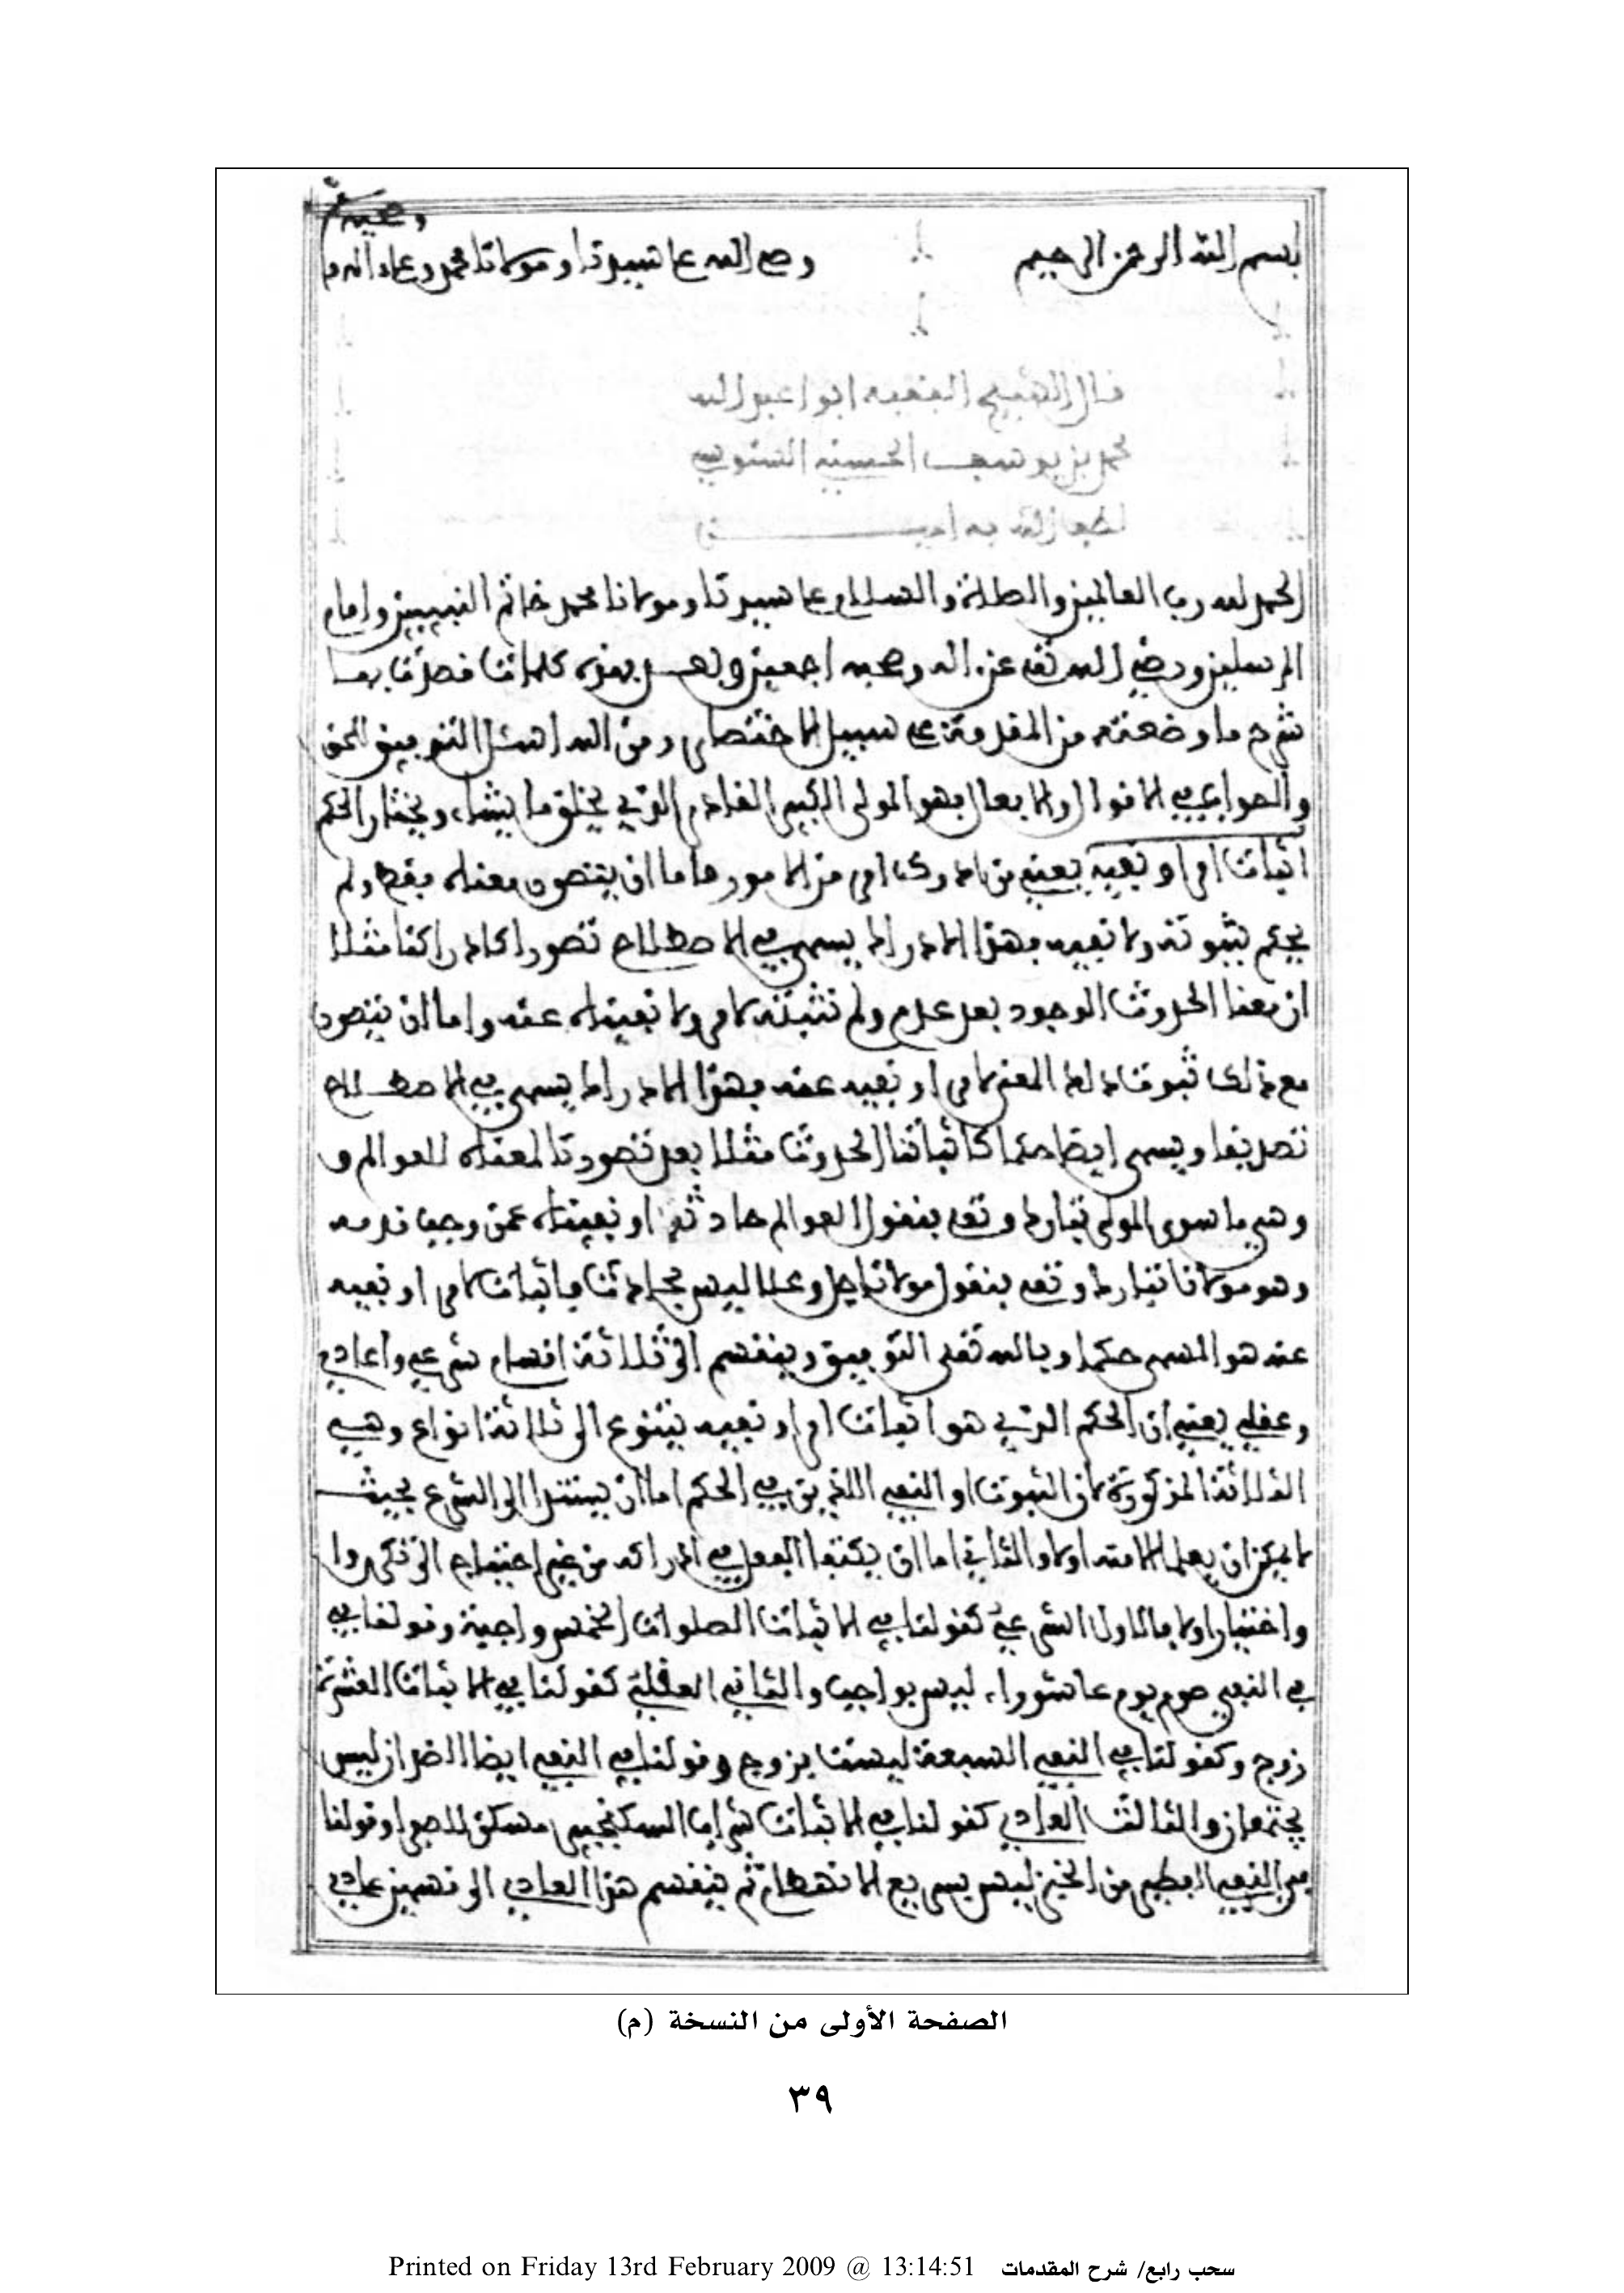 وصحبه
بسم الله الرحمن الرحيم وصلى الله على سيدنا ومولانا محمد وعلى اله
قال الشيخ الفقيه ابوا عبد الله
محمد بن يوسف الحسني السنوسي
الله به امين
الحمد لله رب العالمين والصلاة والسلام على سيدنا ومولانا محمد خاتم النبيين وإمام
المرسلين ورضي الله تعلى عن اله وصحبه اجمعين وبعد بهذه كلمات قصدت بها
شرح ما وضعته من المقدمة على سبيل الاختصار ومن الله اسئل التوفيق للحق
والصواب في الاقوال والافعال فهو المولى الكبير القادر الذي يخلق ما يشاء ويختار الحكم
اثبات امر او نفيه يعني من ادرك امرا من الامور فاما ان يتصور معناه فقط ولم
يحكم بثبوته ولا نفيه فهذا الادراك يسمى في الاصطلاح تصورا كادراكنا مثلا
ان معنا الحدوث الوجود بعد عدم ولم نثبته لامر ولا نفيناه عنه واما ان يتصور
مع ذلك ثبوت ذلك المعنى لامر او نفيه عنه فهذا الادراك يسمى في الاصطلاح
تصديقا ويسمى ايضا حكما كاثباتنا الحدوث مثلا بعد تصورنا لمعناه للعوالم و
وهي ما سوى المولى تبارك وتعلى فنقول العوالم حادثة او نفيناه عمن وجب قدمه
وهو مولانا تبارك وتعلى فنقول مولانا جل وعلا ليس بحادث فاثبات لامر او نفيه
عنه هو المسمى حكما وبالله تعلى التوفيق وينقسم الى ثلاثة اقسام شرعي واعادي
وعقلي يعني ان الحكم الذي هو اثبات امر او نفيه يتنوع الى ثلاثة انواع وهي
الثلاثة المذكورة لان الثبوت او النفي اللذين في الحكم اما ان يستندا الى الشرع بحيث
لا يمكن ان يعلما الا منه اولا والثاني اما ان يكتفا العقل في ادراكه من غير احتياج الى تكرر
واختبار اولا فالاول الشرعي كقولنا في الاثبات الصلوات الخمس واجبة وقولنا في
في النفي صوم يوم عاشوراء ليس بواجب والثاني العقلي كقولنا في الاثبات العشرة
زوج وكقولنا في النفي السبعة ليست بزوج وقولنا في النفي ايضا الضدان ليس
يجتمعان والثالث العادي كقولنا في الاثبات شراب السكنجبين مسكن للصفرا وقولنا
في النفي الفطير من الخبز ليس بسريع الانهضام ثم ينقسم هذا العادي الى قسمين عادي
الصفحة الأولى من النسخة (م)
٣٩
Printed on Friday 13rd February 2009 @ 13:14:51 سحب رابع/ شرح المقدمات